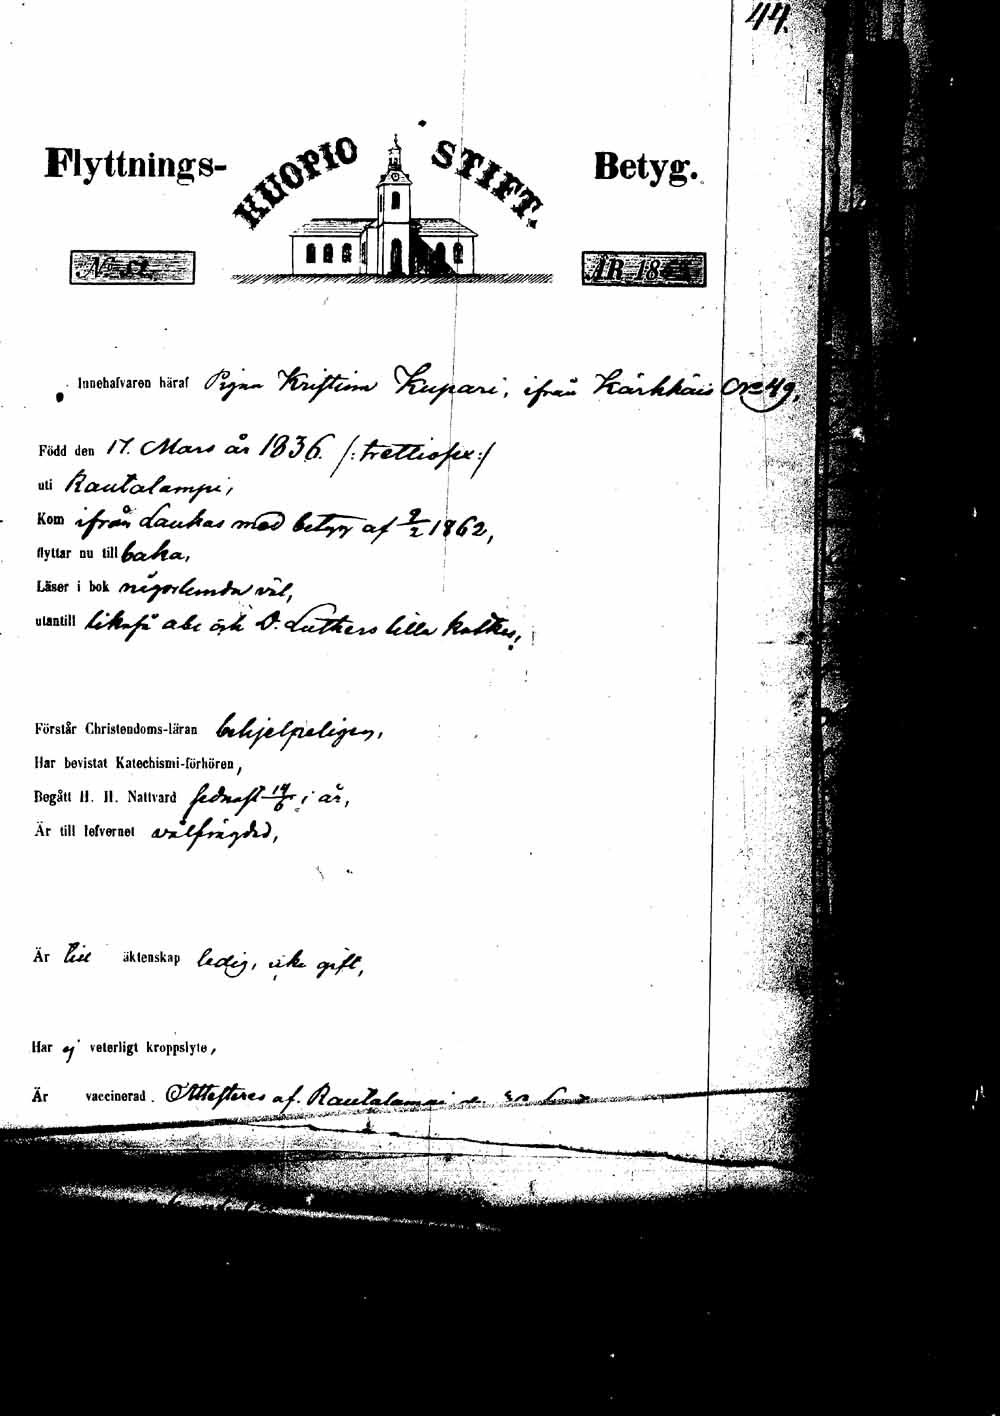 44.
Flyttnings- KUOPIO STIFT. Betyg.
No ÅR 18
Innehafvaren häraf Kristina Kupari, ifrån Kärkkäis No 49,
Född den 17. Mars år 1836. /: trettiosex :/
uti Rautalampi,
Kom ifrån Laukas med betyg af 9/2 1862,
flyttar nu till baka,
Läser i bok någorlunda väl,
utantill likaså abc och D. Luthers lilla
Förstår Christendoms-läran behjelpeligen,
Har bevistat Katechismi-förhören,
Begått H. H. Nattvard sednast i år,
Är till lefvernet välfrägdad,
Är till äktenskap ledig, icke gift,
Har ej veterligt kroppslyte,
Är vaccinerad. Attesteres af. Rautalampi